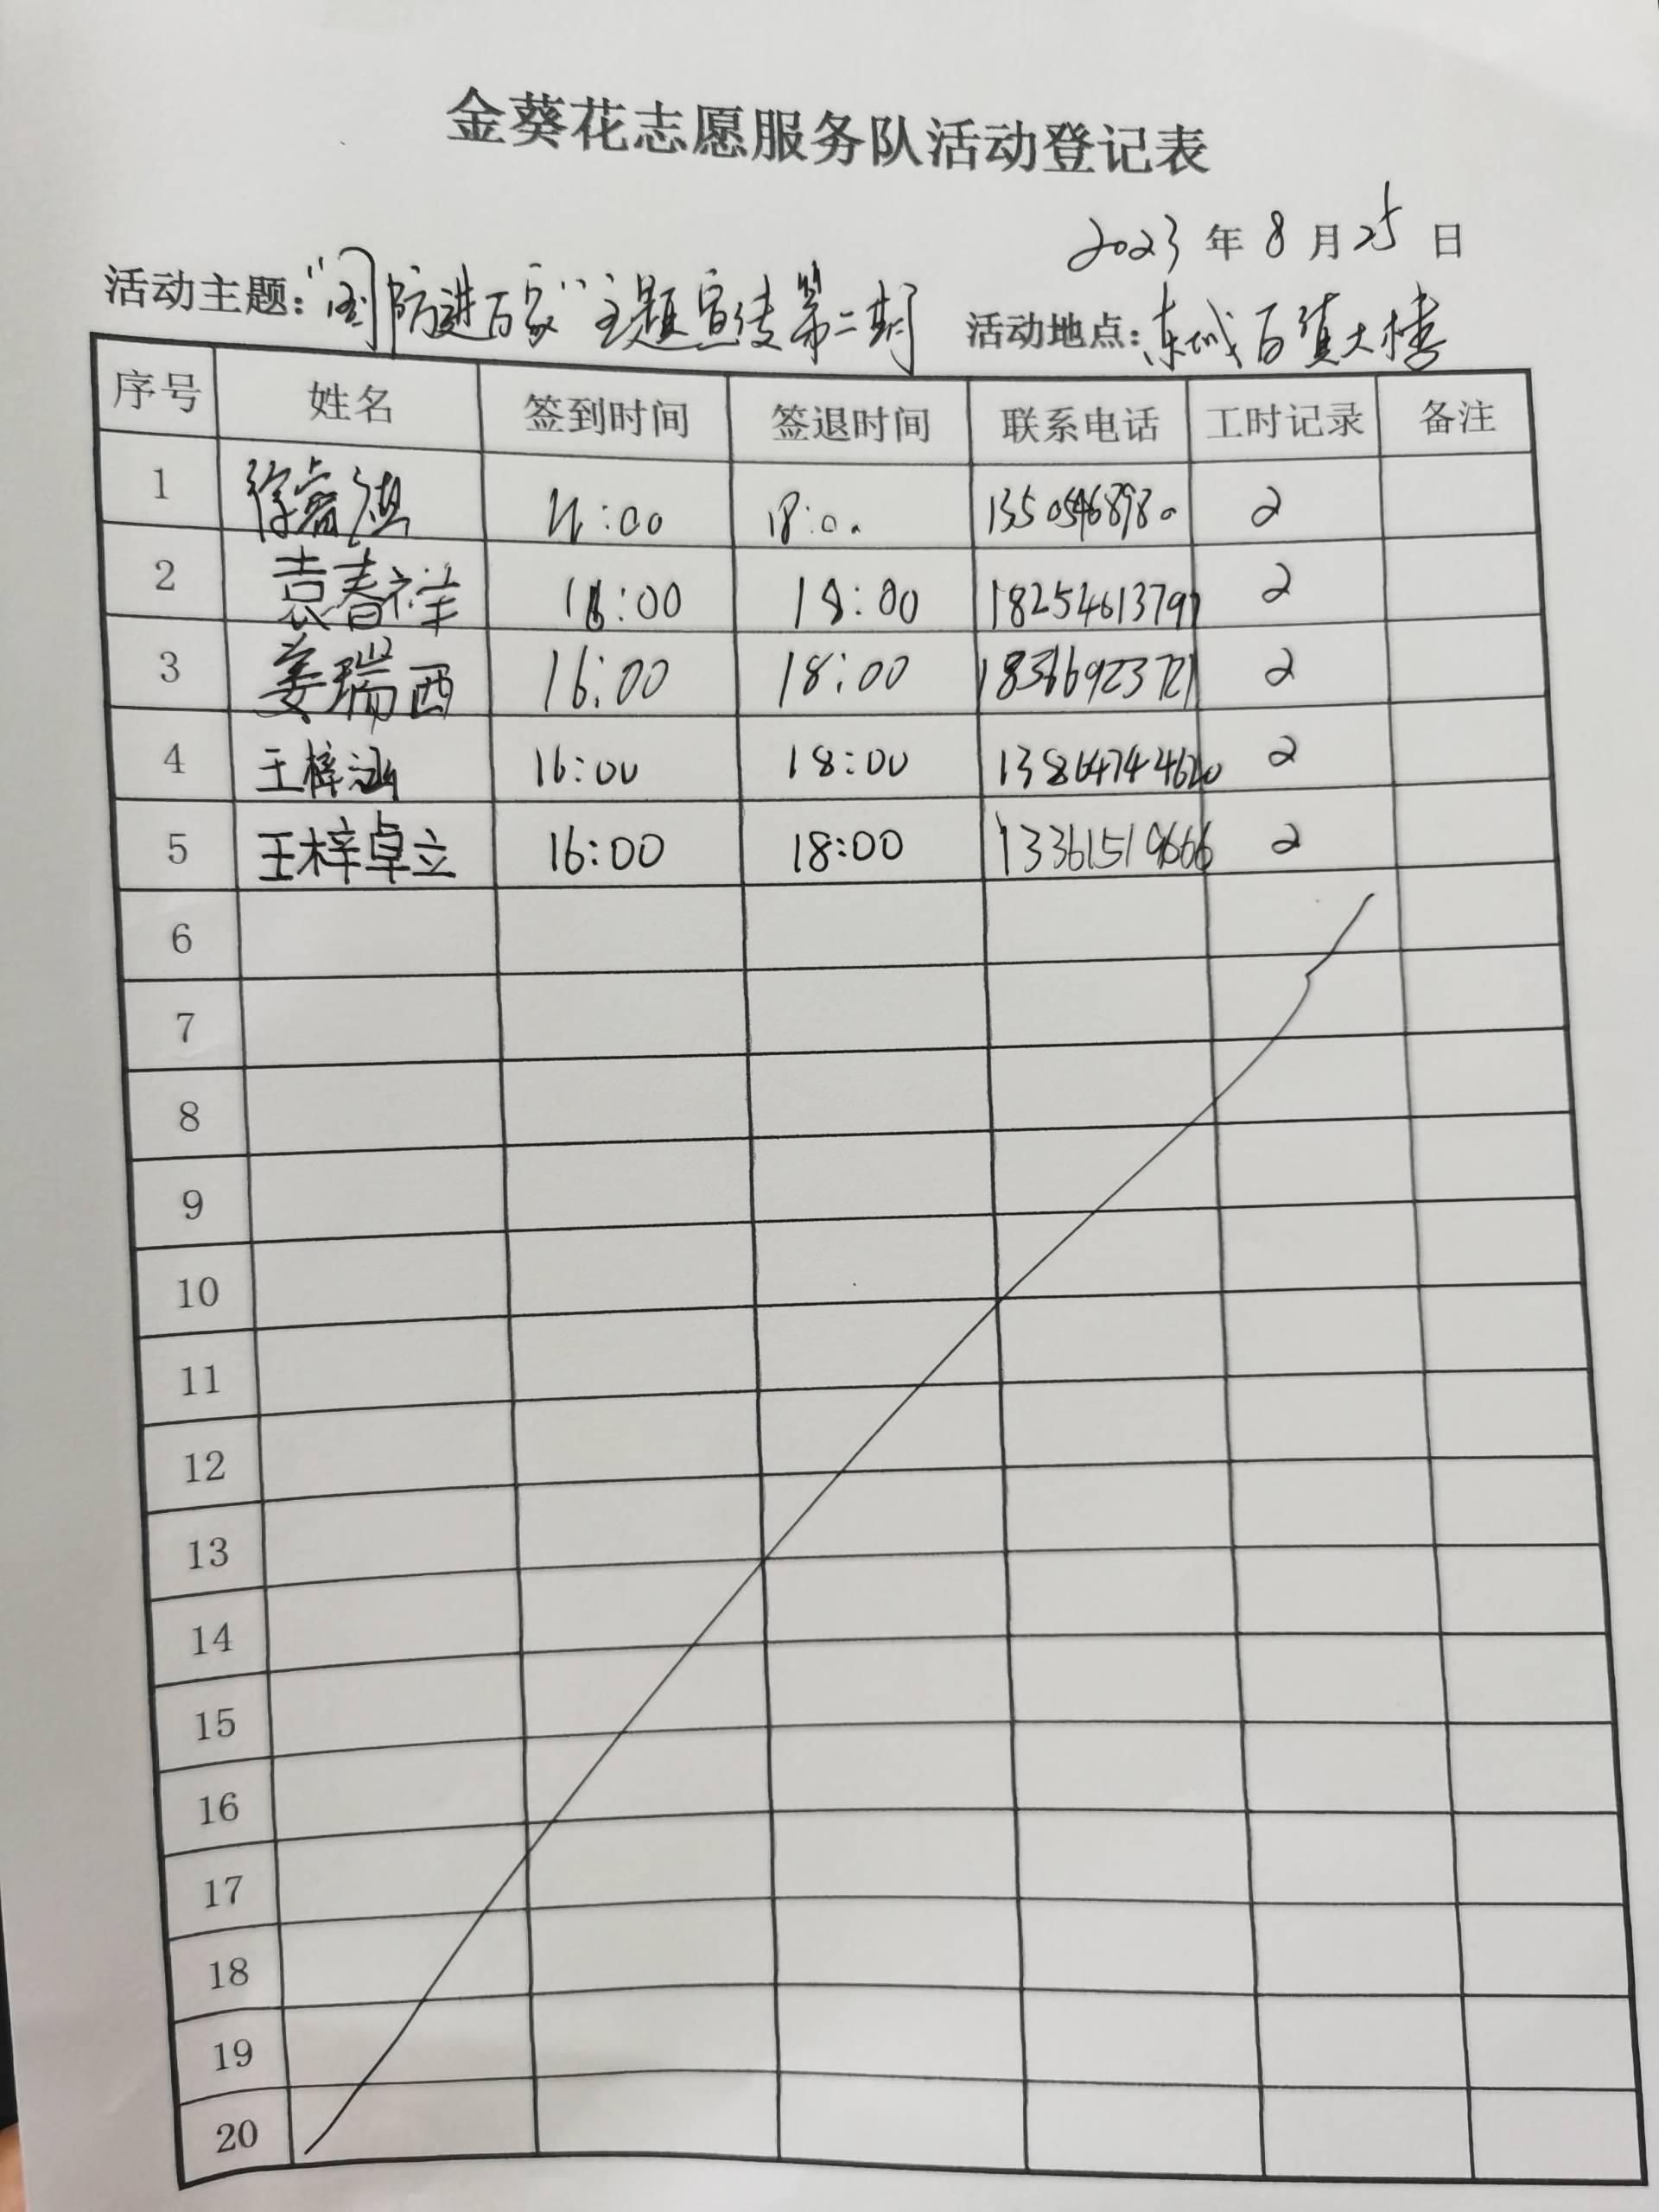 金葵花志愿服务队活动登记表
2023年8月25日
活动主题:"国防进百家"主题宣传第二期 活动地点:东城百货大楼
序号 姓名 签到时间 签退时间 联系电话 工时记录 备注
1 徐睿 :00 18:00 13505468980 2
2 袁春祥 16:00 18:00 18254613797 2
3 姜瑞西 16:00 18:00 18366923721 2
4 王梓涵 16:00 18:00 13864744620 2
5 王梓卓立 16:00 18:00 13361519666 2
6
7
8
9
10
11
12
13
14
15
16
17
18
19
20